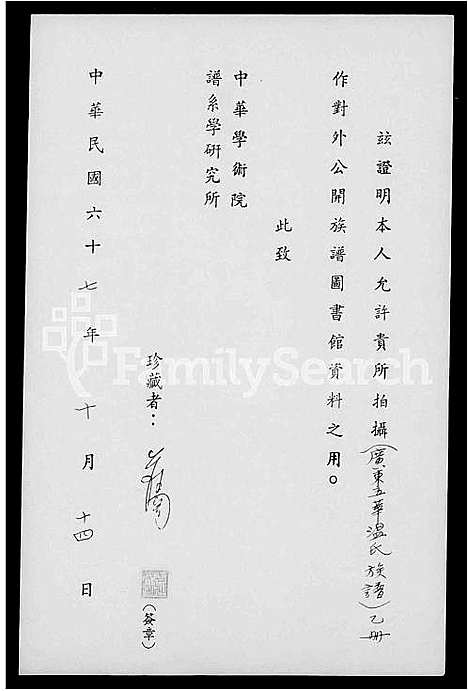 茲證明本人允許貴所拍攝(廣東五華溫氏族譜)乙冊
作對外公開族譜圖書館資料之用。
此致
中華學術院
譜系學研究所
珍藏者：
(簽章)
中華民國六十七年十月十四日
FamilySearch